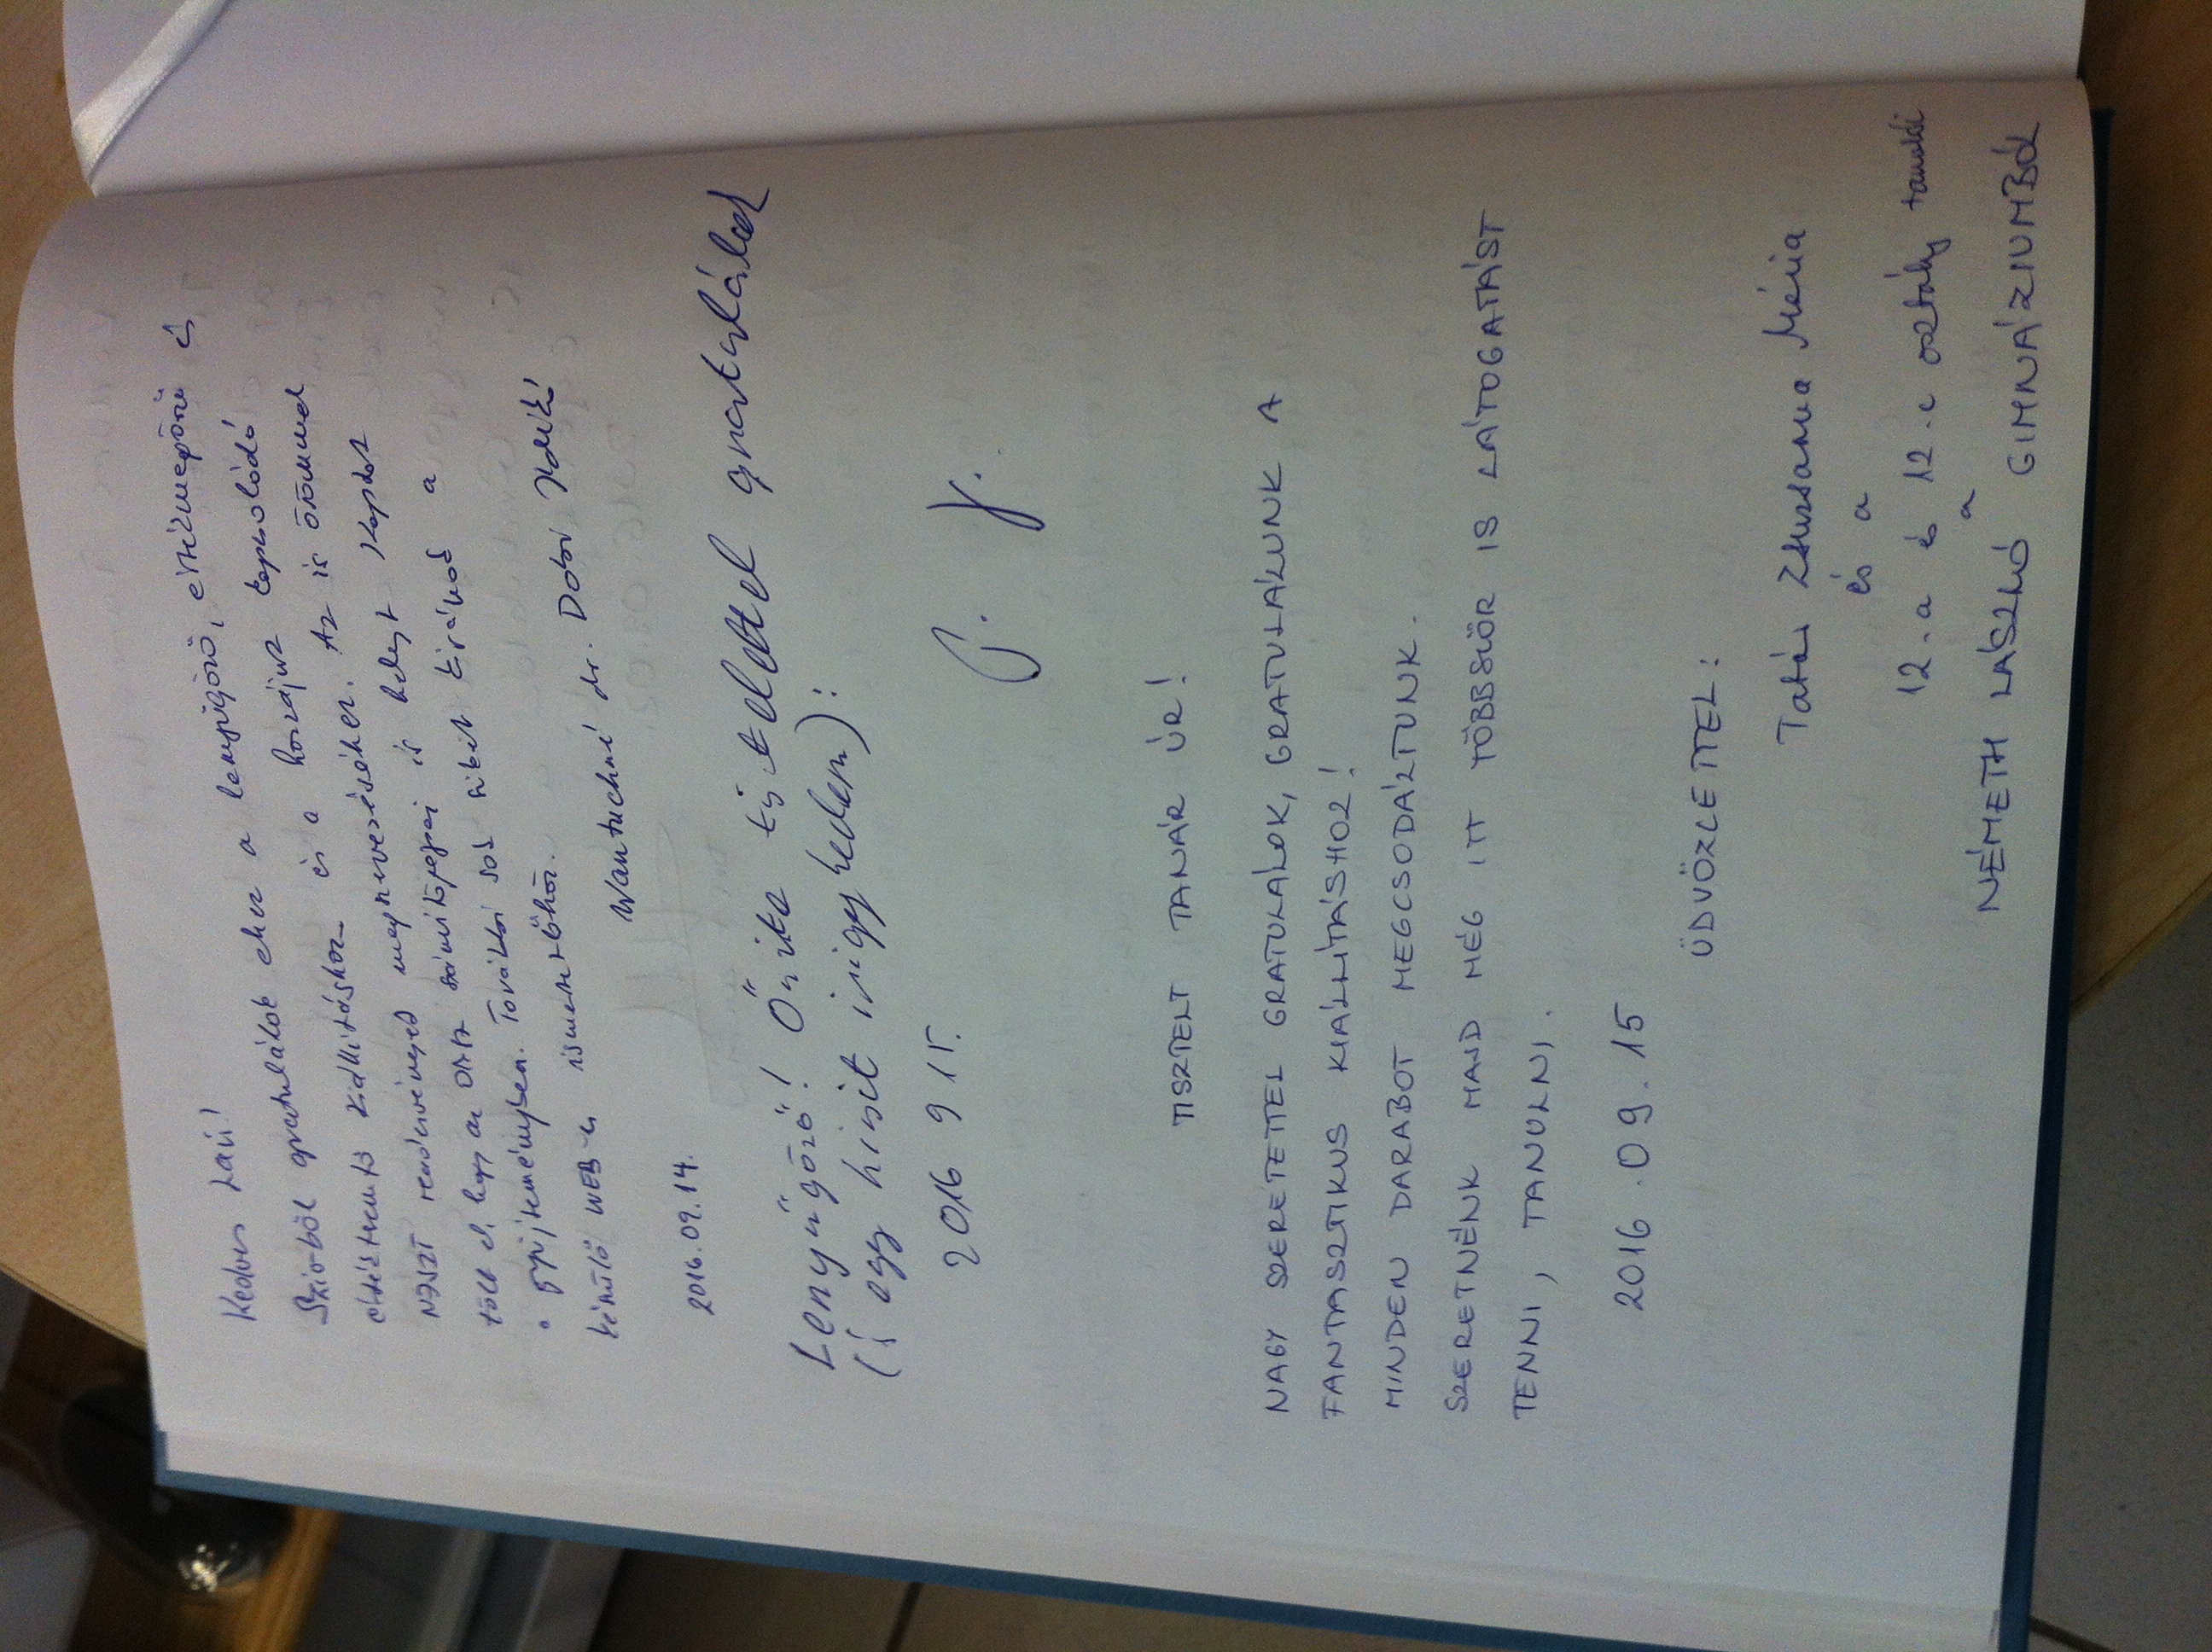 Kedves Laci!
Szívből gratulálok ehhez a lenyűgöző, értékmegőrző
értékteremtő kiállításhoz és a hozzájuk kapcsolódó
NJSZT rendezvényed megszervezéséhez. Az is örömmel
tölt el, hogy az számítógépei is helyt kaptak
a gyűjteményben. További sok sikert kívánok a
készülő WEB-es ismertetőhöz.
Wantuchné dr. Dobi Ildikó
2016.09.14.
Lenyűgöző! Őszinte tisztelettel gratulálok
(s egy kicsit irigykedem):
2016 9 15.
P. J.
TISZTELT TANÁR ÚR!
NAGY SZERETETTEL GRATULÁLOK, GRATULÁLUNK A
FANTASZTIKUS KIÁLLÍTÁSHOZ!
MINDEN DARABOT MEGCSODÁLTUNK.
SZERETNÉNK MAJD MÉG ITT TÖBBSZÖR IS LÁTOGATÁST
TENNI, TANULNI.
2016.09.15
ÜDVÖZLETTEL:
Tatár Zsuzsanna Mária
és a
12.a és 12.c osztály tanulói
a
NÉMETH LÁSZLÓ GIMNÁZIUMBÓL